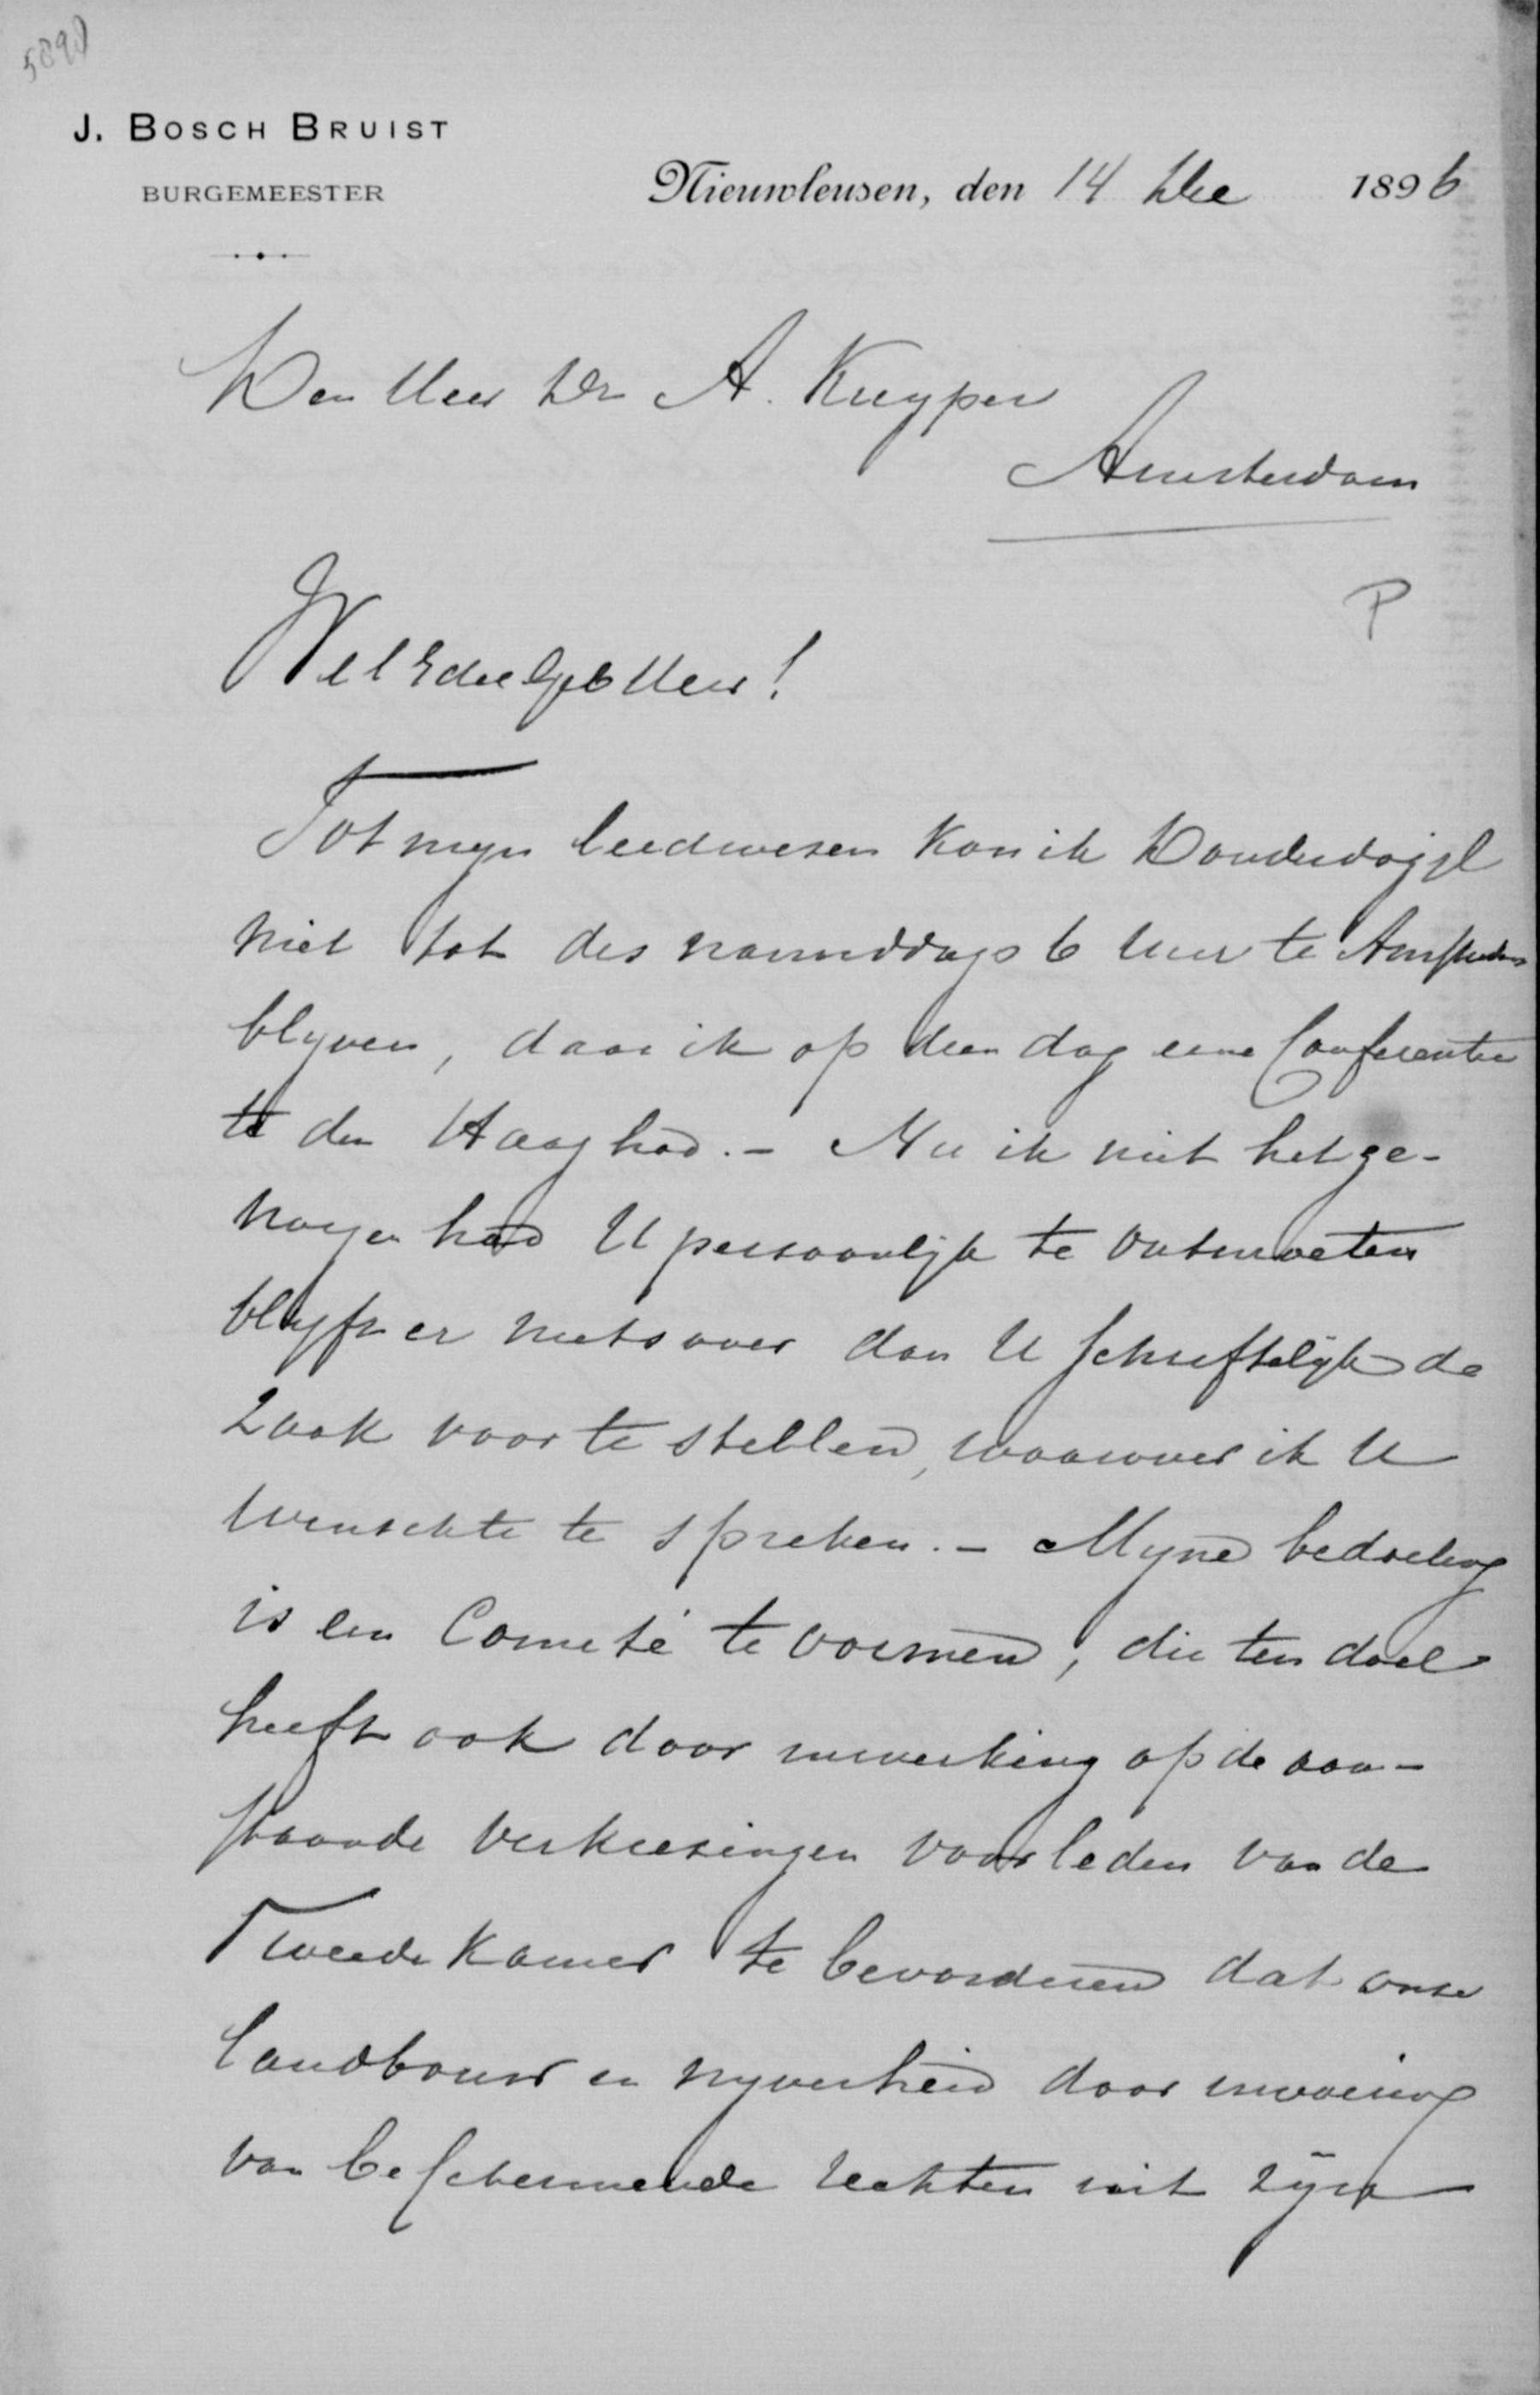 5890
J. BOSCH BRUIST
BURGEMEESTER
Nieuwleusen, den 14 Dec 1896
Den Heer Dr A. Kuyper
Amsterdam
P
WelEdelGeb Heer!
Tot mijn leedwezen kon ik Donderdag jl
niet tot des namiddags 6 uur te Amsterdam
blyven, daar ik op dien dag eene Conferentie
te den Haag had. - Nu ik niet het ge-
noegen had U persoonlijk te ontmoeten
blyft er niets over dan U schriftelijk de
zaak voor te stellen, waarover ik U
wenschte te spreken. - Myne bedoeling
is een Comité te vormen, die ten doel
heeft ook door inwerking op de aan-
staande verkiezingen voor leden van de
Tweede Kamer te bevorderen dat onze
landbouw en nyverheid door invoering
van beschermende rechten uit zijn